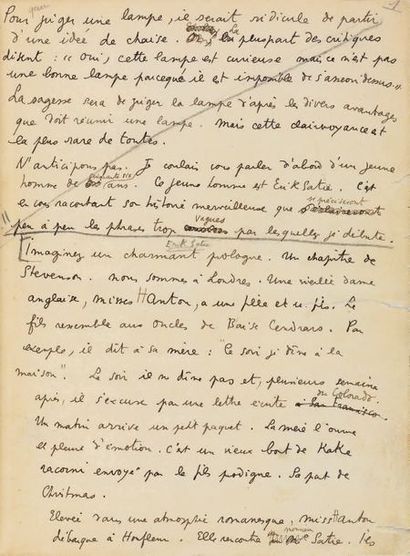 1
Pour juger une lampe, il serait ridicule de partir
d'une idée de chaise. Or, la pluspart des critiques
disent : « Oui, cette lampe est curieuse mais ce n'est pas
une bonne lampe parce que il est imposible de s'asseoir dessus. »
La sagesse sera de juger la lampe d'après les divers avantages
que doit réunir une lampe. Mais cette clairvoyance est
la plus rare de toutes.
N'anticipons pas. Je voulais vous parler d'abord d'un jeune
homme de ans. Ce jeune homme est Erik Satie. C'est
en vous racontant son histoire merveilleuse que se préciseront
peu à peu les phrases trop vagues par lesquelles je débute.
Erik Satie
Imaginez un charmant prologue. Un chapitre de
Stevenson. Nous somme à Londres. Une vieille dame
anglaise, misses Hanton, a une fille et un fils. Le
fils ressemble aux oncles de Blaise Cendrars. Par
exemple, il dit à sa mère : "Ce soir, je dîne à la
maison". Le soir il ne dîne pas et, plusieurs semaine
après, il s'excuse par une lettre écrite du Colorado.
Un matin arrive un petit paquet. La mère l'ouvre
et pleure d'émotion. C'est un vieux bout de Kake
racorni envoyé par le fils prodigue. Sa part de
Christmas.
Elevée dans une atmosphère romanesque, miss Hanton
débarque à Honfleur. Elle rencontre Satie. Ils